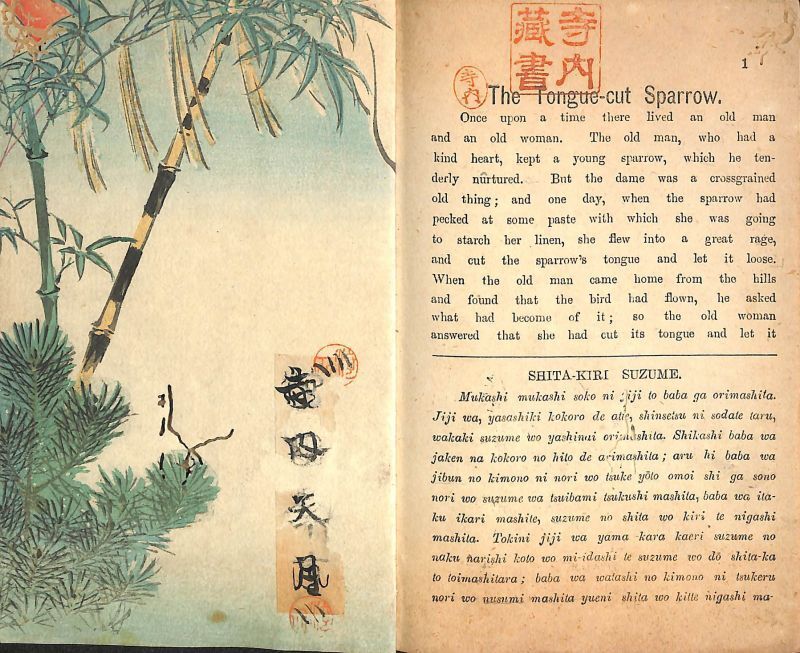 寺内
藏書
1
寺内
The Tongue-cut Sparrow.
Once upon a time there lived an old man
and an old woman. The old man, who had a
kind heart, kept a young sparrow, which he ten-
derly nurtured. But the dame was a crossgrained
old thing; and one day, when the sparrow had
pecked at some paste with which she was going
to starch her linen, she flew into a great rage,
and cut the sparrow's tongue and let it loose.
When the old man came home from the hills
and found that the bird had flown, he asked
what had become of it; so the old woman
answered that she had cut its tongue and let it
SHITA-KIRI SUZUME.
Mukashi mukashi soko ni jiji to baba ga orimashita.
Jiji wa, yasashiki kokoro de atte, shinsetsu ni sodate taru,
wakaki suzume wo yashinai orimashita. Shikashi baba wa
jaken na kokoro no hito de arimashita; aru hi baba wa
jibun no kimono ni nori wo tsuke yōto omoi shi ga sono
nori wo suzume wa tsuibami tsukushi mashita, baba wa ita-
ku ikari mashite, suzume no shita wo kiri te nigashi
mashita. Tokini jiji wa yama kara kaeri suzume no
naku narishi koto wo mi-idashi te suzume wo dō shita-ka
to toimashitara; baba wa watashi no kimono ni tsukeru
nori wo nusumi mashita yueni shita wo kitte nigashi ma-